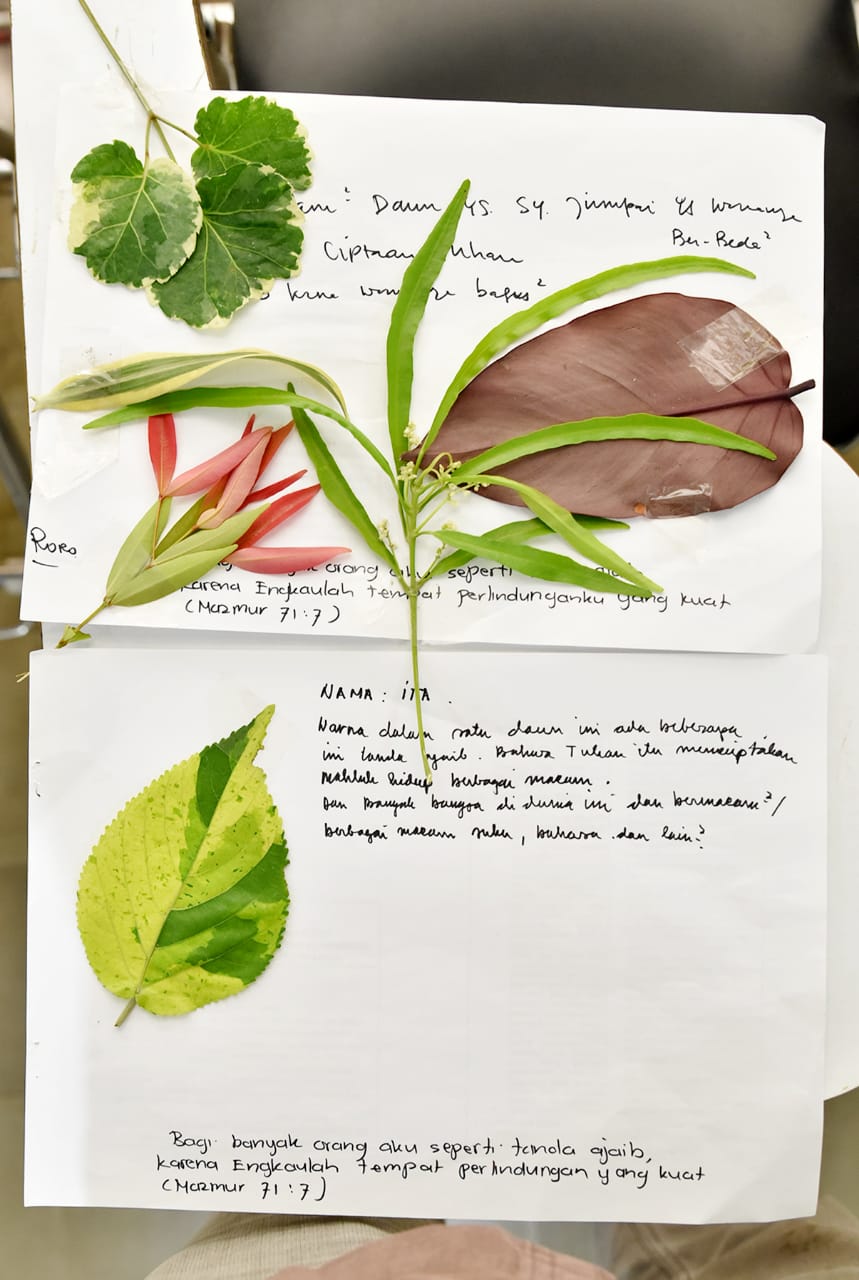 Daun yg. Sy. Jumpai yg warnanya
Ber-Beda²
Ciptaan
bagus²
Roro
orang aku seperti
karena Engkaulah tempat perlindunganku yang kuat
(Mazmur 71:7)
NAMA : ITA .
Warna dalam satu daun ini ada beberapa
ini tanda ajaib. Bahwa Tuhan itu menciptakan
Mahluk hidup berbagai macam .
Dan Banyak bangsa di dunia ini dan bermacam²/
berbagai macam suku, bahasa dan lain²
Bagi banyak orang aku seperti tanda ajaib,
karena Engkaulah tempat perlindungan yang kuat
(Mazmur 71:7)